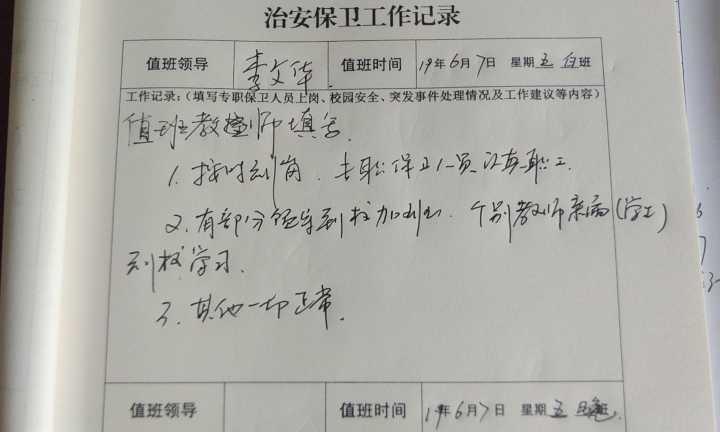 治安保卫工作记录
值班领导 李文华 值班时间 19年6月7日 星期五 白班
工作记录:(填写专职保卫人员上岗、校园安全、突发事件处理情况及工作建议等内容)
值班教师填写
1. 按时到岗、专职保卫人员认真职工.
2. 有部分领导到校加班、个别教师亲临(学生)
到校学习.
3. 其他一切正常.
值班领导 值班时间 19年6月7日 星期五 班